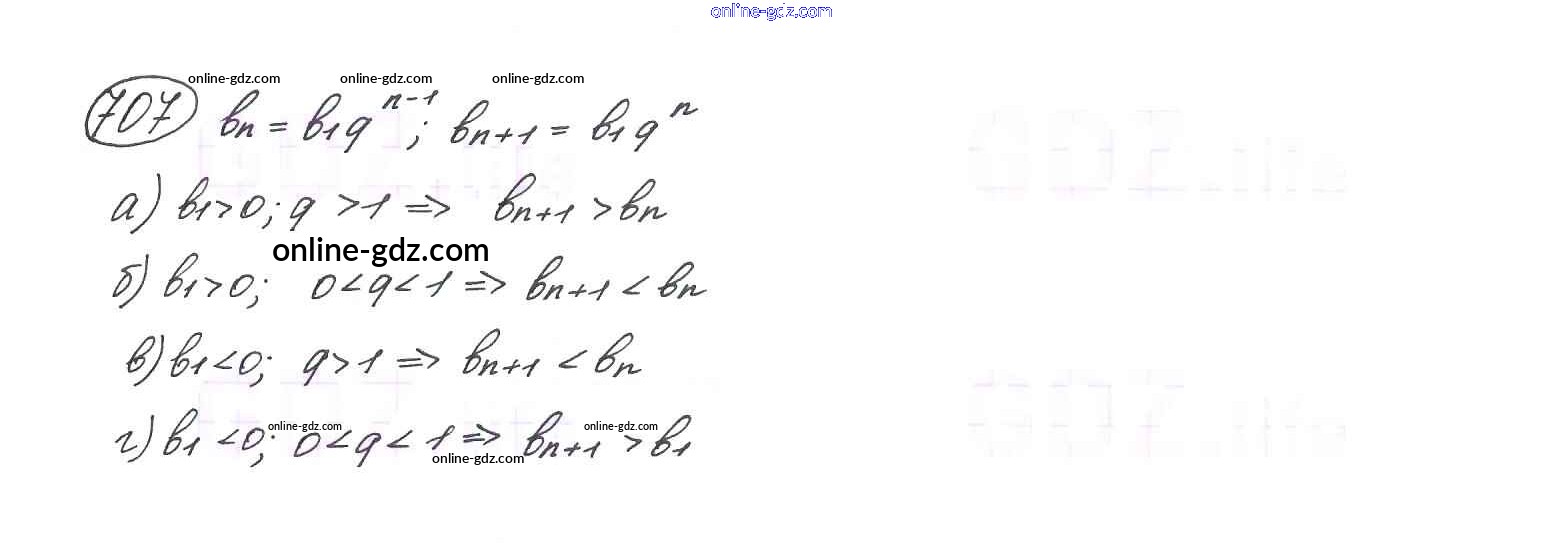 online-gdz.com
online-gdz.com online-gdz.com online-gdz.com
707 bₙ = b₁qⁿ⁻¹; bₙ₊₁ = b₁qⁿ
а) b₁>0; q >1 => bₙ₊₁ >bₙ
online-gdz.com
б) b₁>0; 0<q<1 => bₙ₊₁ < bₙ
в) b₁<0; q>1 => bₙ₊₁ < bₙ
online-gdz.com online-gdz.com
г) b₁ <0; 0<q< 1 => bₙ₊₁ >b₁
online-gdz.com